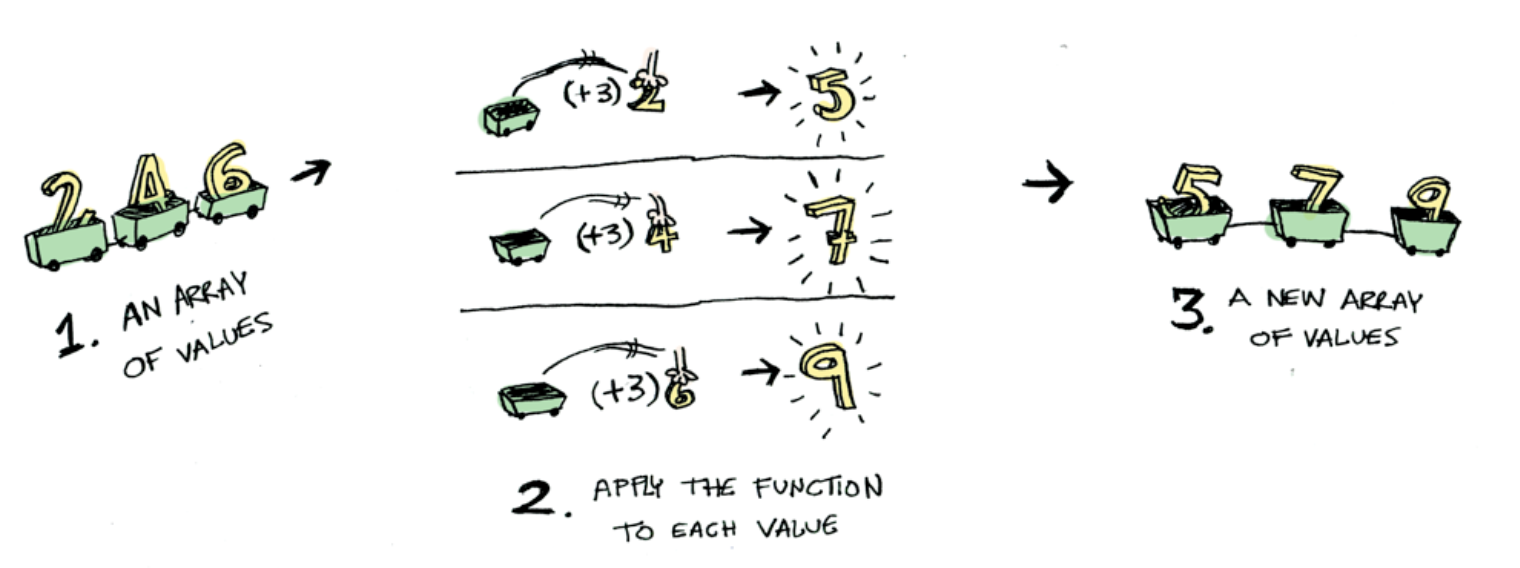 2 4 6
1. AN ARRAY
OF VALUES
(+3) 2 → 5
(+3) 4 → 7
(+3) 6 → 9
2. APPLY THE FUNCTION
TO EACH VALUE
5 7 9
3. A NEW ARRAY
OF VALUES